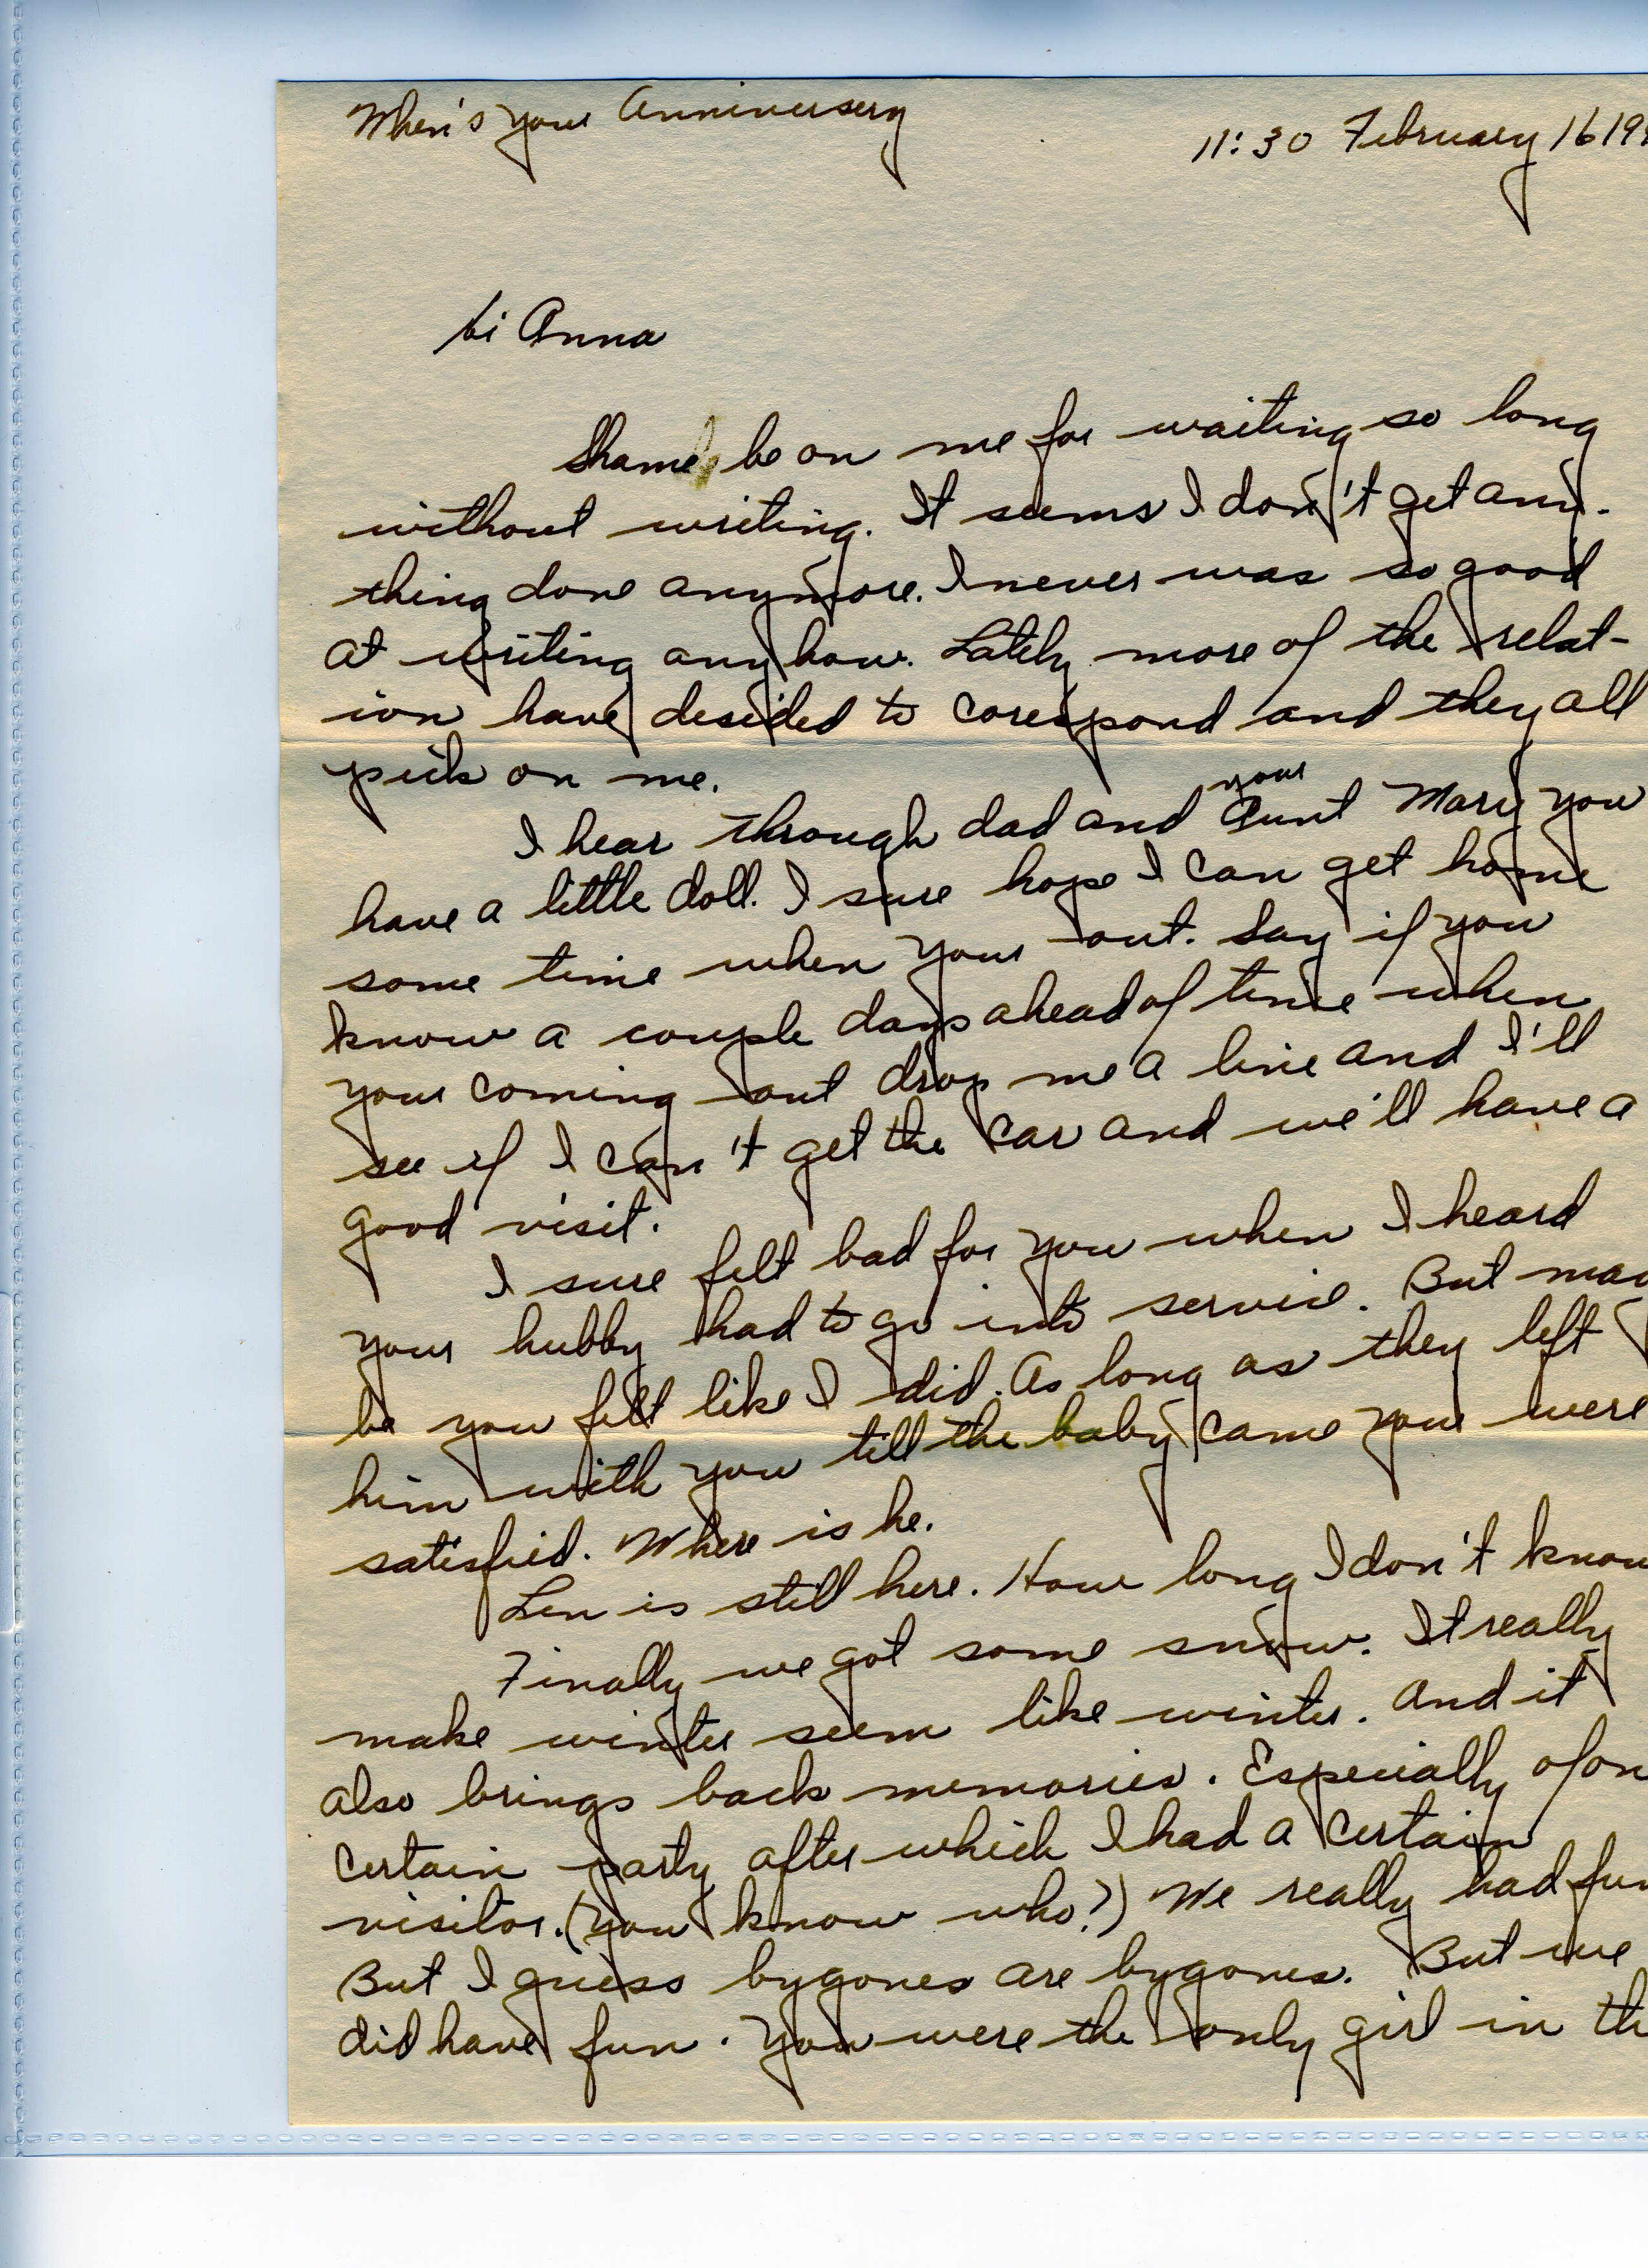 When's your Anniversery
11:30 February 16 19
hi Anna
Shame be on me for waiting so long
without writing. It seems I don't get any-
thing done anymore. I never was so good
at writing anyhow. Lately more of the relat-
ion have desided to corespond and they all
pick on me.
your
I hear through dad and Aunt Mary you
have a little doll. I sure hope I can get home
some time when your out. Say if you
know a couple days ahead of time when
your coming out drop me a line and I'll
see if I can't get the car and we'll have a
good visit.
I sure felt bad for you when I heard
your hubby had to go into service. But may
be you felt like I did. As long as they left
him with you till the baby came your were
satisfied. Where is he.
Len is still here. How long I don't know
Finally we got some snow. It really
make winter seem like winter. And it
also brings back memories. Especially of on
certain party after which I had a certain
visitor. (you know who?) We really had fun
But I guess bygones are bygones. But we
did have fun. You were the only girl in th